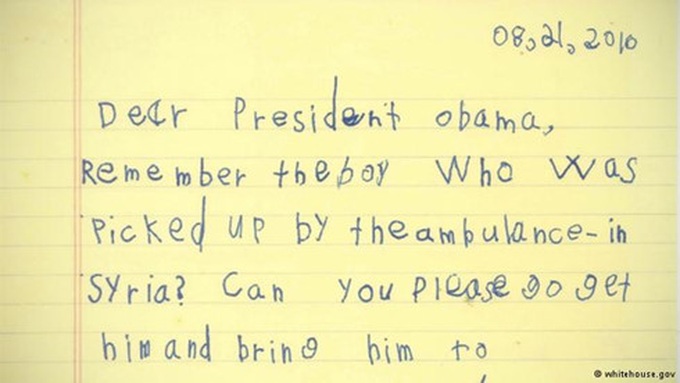 08,21,2010
Dear President obama,
Remember the boy Who Was
Picked up by the ambulance-in
Syria? Can you please go get
him and bring him to
© whitehouse.gov